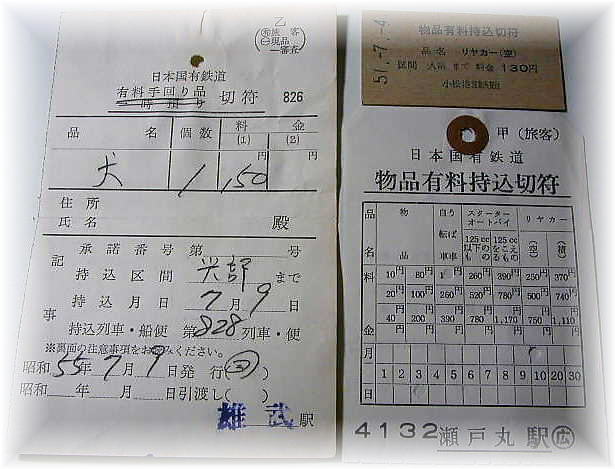 乙
日本国有鉄道
有料手回り品
時預り
切符 826
品名 個数 料金
(1) (2)
犬 1 150円 円
住所
氏名 殿
記事
承諾番号第 号
持込区間 まで
持込月日 7月9日
持込列車・船便 第828列車・便
※裏面の注意事項をお読みください。
昭和55年7月9日発行(回)
昭和 年 月 日引渡し( )
雄武駅
51.-7.-4
物品有料持込切符
品名 リヤカー(空)
区間 まで 料金 130円
甲(旅客)
日本国有鉄道
物品有料持込切符
品名 物品 自転車 スクーターオートバイ リヤカー
125cc以下のもの 125ccをこえるもの (空) (積)
料金
10円 80円 円 260円 390円 250円 370円
20円 100円 260円 520円 780円 500円 740円
40円 200円 390円 780円 1,170円 750円 1,110円
月
日 1 2 3 4 5 6 7 8 9 10 20 30
4132 瀬戸丸駅 広